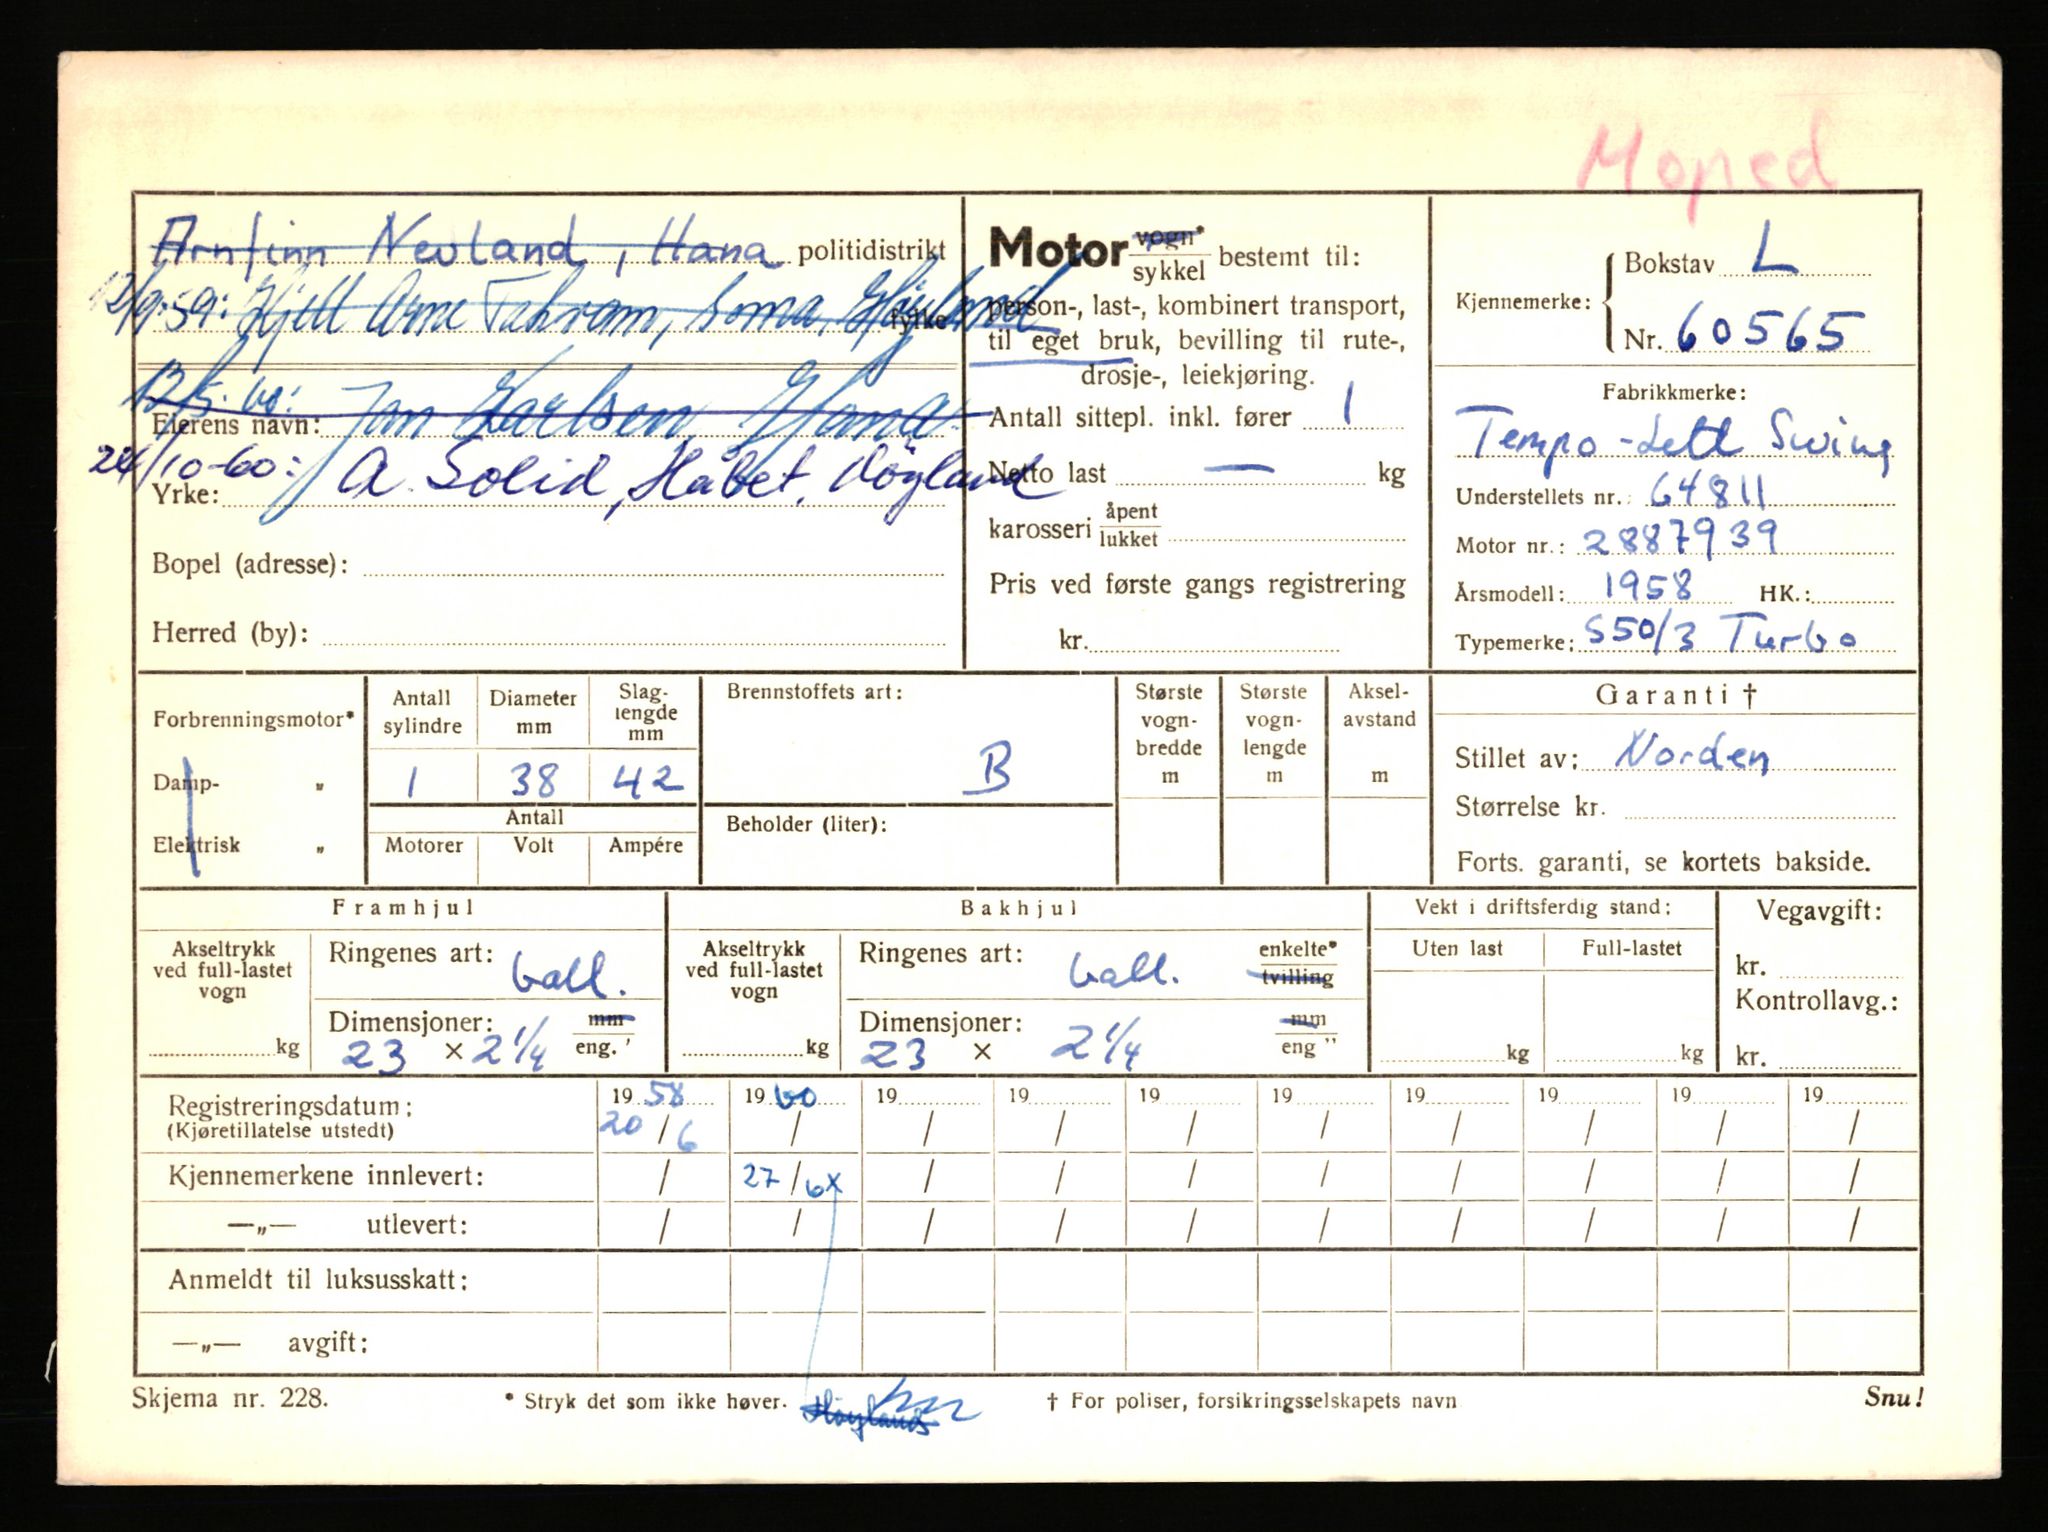 Moped
Arnfinn Nevland, Hana politidistrikt
12/9-59: Kjell Arne Soma, Høyland fylke
12/5-60: Jan Karlsen,
Eierens navn:
24/10-60: A. Solid, Håbet, Høyland
Yrke:
Bopel (adresse):
Herred (by):
Motor vogn*
sykkel bestemt til:
person-, last-, kombinert transport,
til eget bruk, bevilling til rute-,
drosje-, leiekjøring.
Antall sittepl. inkl. fører 1
Netto last — kg
karosseri åpent
lukket
Pris ved første gangs registrering
kr.
Kjennemerke: Bokstav L
Nr. 60565
Fabrikkmerke:
Tempo-Lett Swing
Understellets nr.: 64811
Motor nr.: 2887939
Årsmodell: 1958 HK.:
Typemerke: S50/3 Turbo
Forbrenningsmotor*
Damp- „
Elektrisk „
Antall sylindre 1
Diameter mm 38
Slaglengde mm 42
Antall
Motorer Volt Ampére
Brennstoffets art:
B
Beholder (liter):
Største vognbredde m
Største vognlengde m
Akselavstand m
Garanti †
Stillet av: Norden
Størrelse kr.
Forts. garanti, se kortets bakside.
Framhjul
Akseltrykk ved full-lastet vogn
kg
Ringenes art: ball.
Dimensjoner: mm
23 × 2 1/4 eng. '
Bakhjul
Akseltrykk ved full-lastet vogn
kg
Ringenes art: ball. enkelte*
tvilling
Dimensjoner: mm
23 × 2 1/4 eng "
Vekt i driftsferdig stand:
Uten last Full-lastet
kg kg
Vegavgift:
kr.
Kontrollavg.:
kr.
Registreringsdatum: 19 58 19 60 19 19 19 19 19 19 19 19
(Kjøretillatelse utstedt) 20/6 / / / / / / / / /
Kjennemerkene innlevert: / 27/6x / / / / / / / /
—„— utlevert: / / / / / / / / / /
Anmeldt til luksusskatt:
—„— avgift:
Skjema nr. 228.
* Stryk det som ikke høver.
Høyland
† For poliser, forsikringsselskapets navn
Snu!